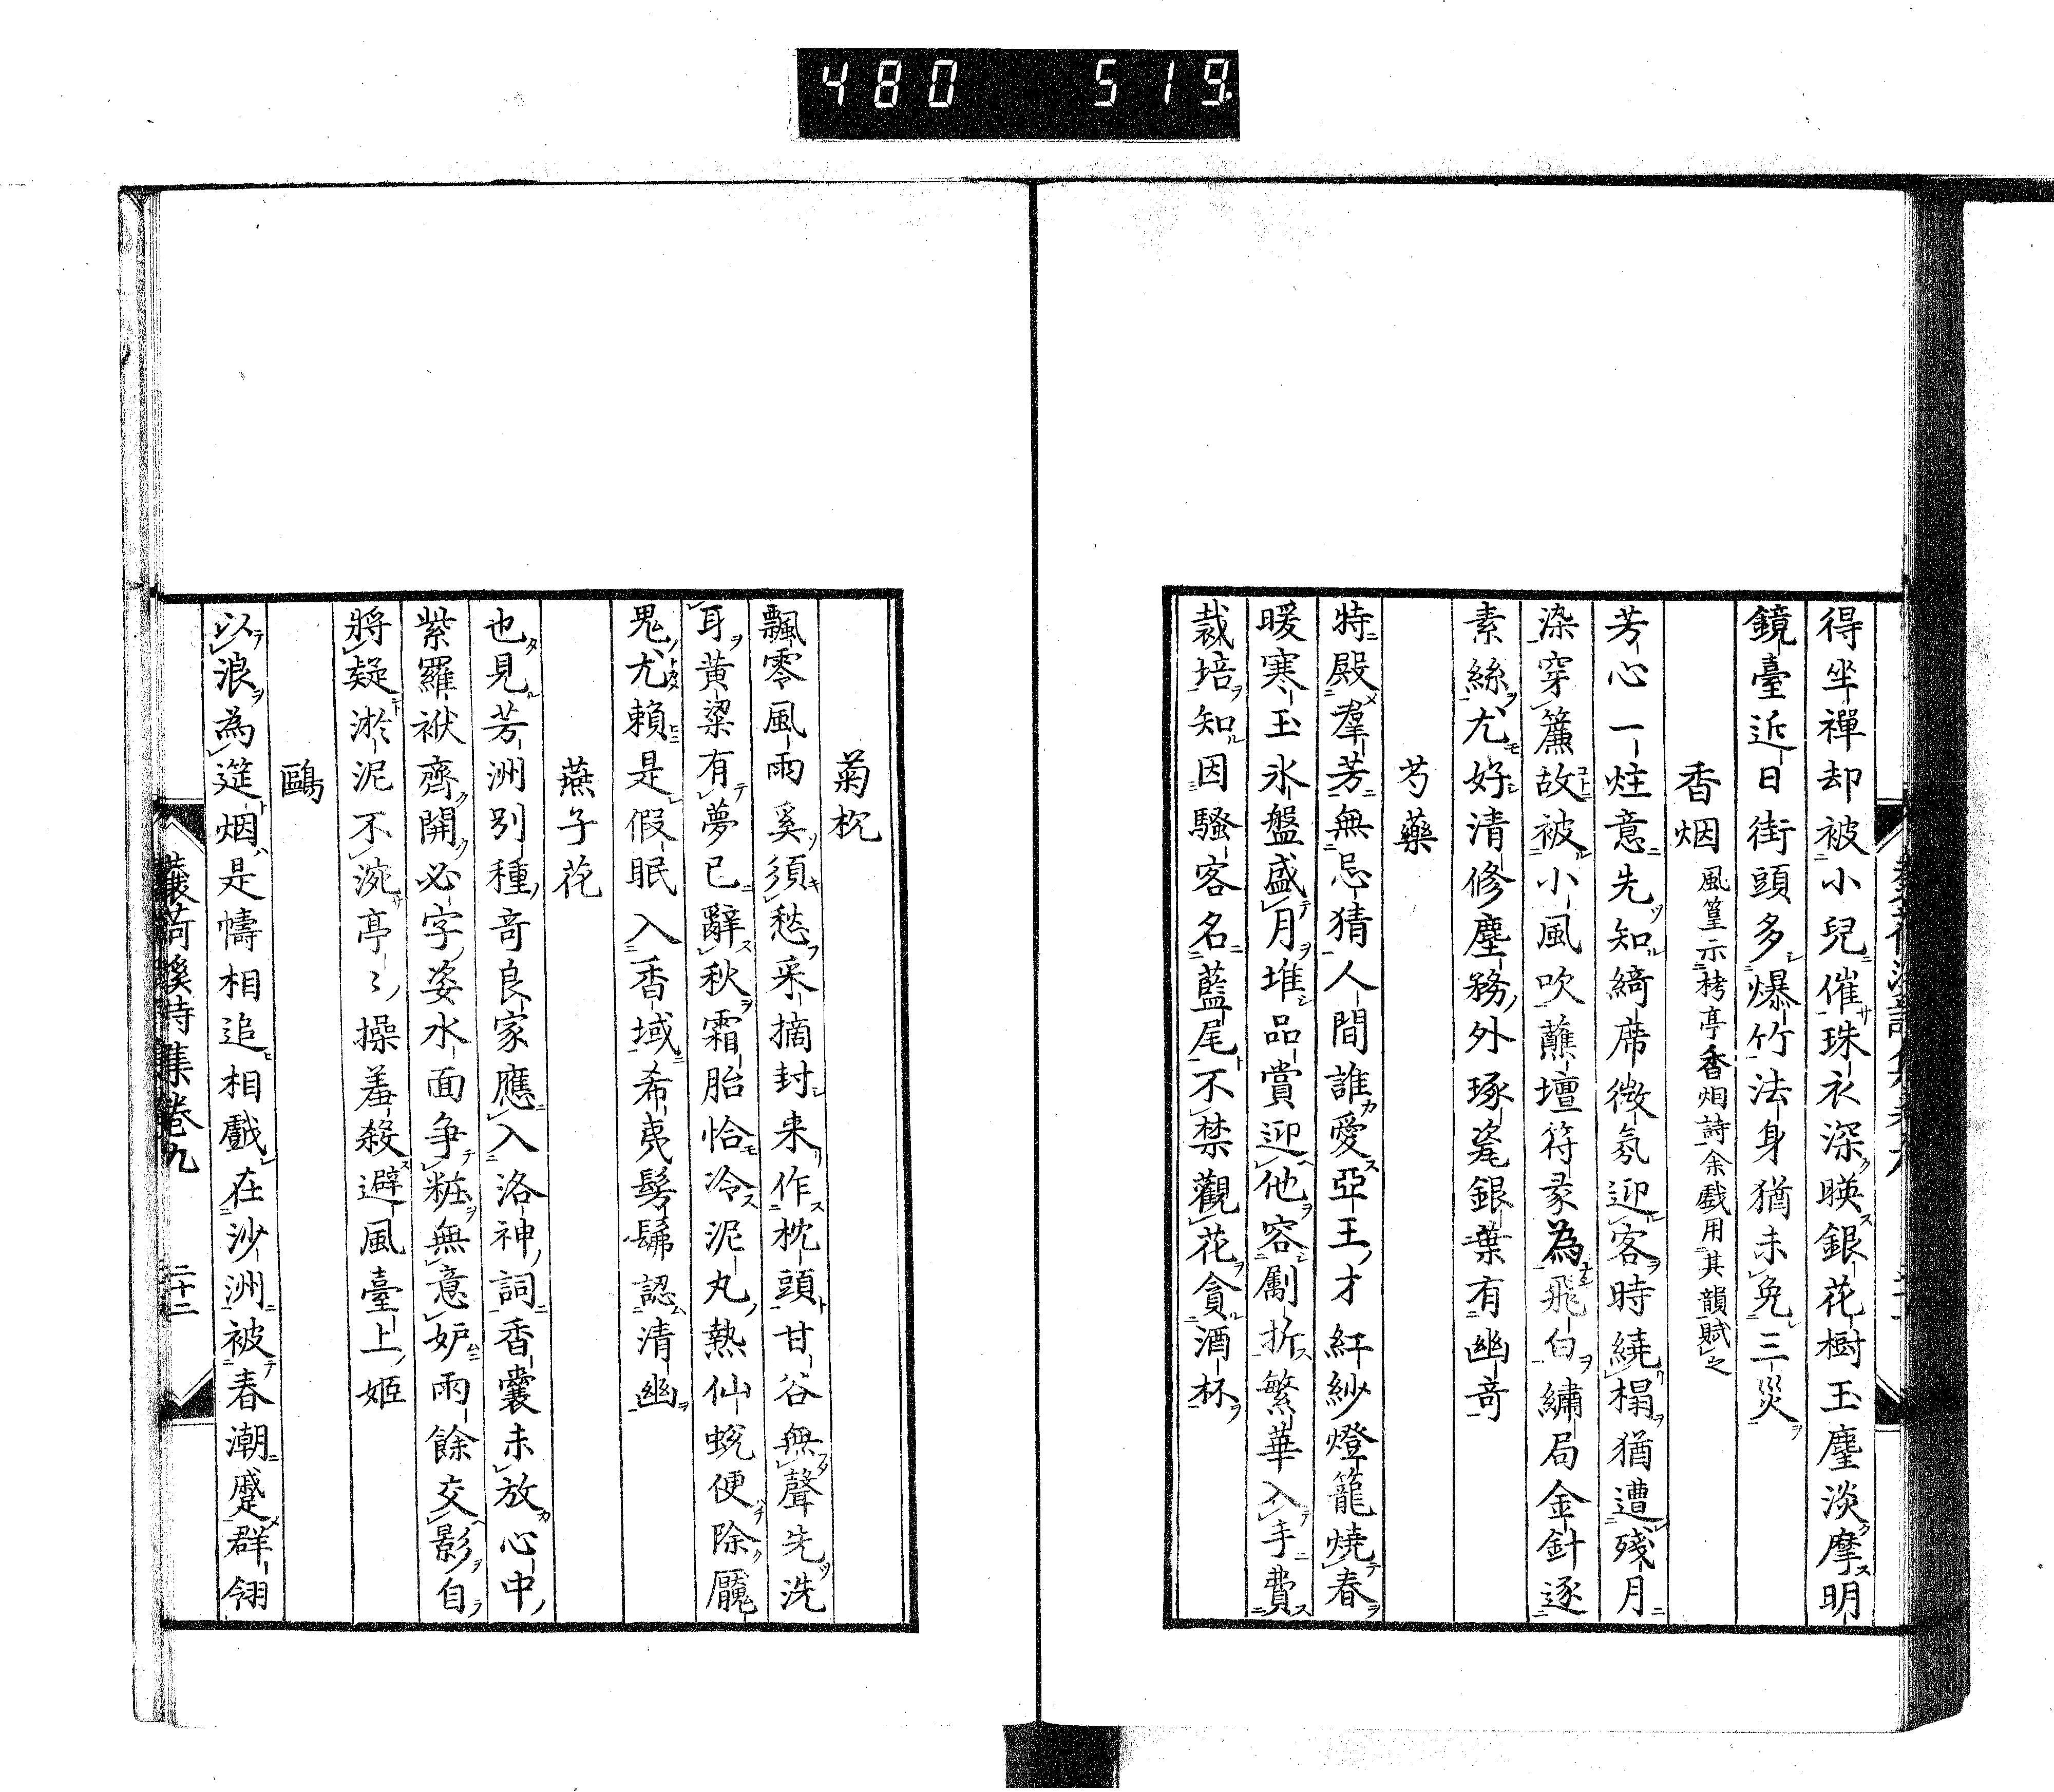 480 519
得坐禪却被小兒催珠衣深暎銀花樹玉塵淡摩明
鏡臺近日街頭多爆竹法身猶未免三災
香烟 風篁示栲亭香烟詩余戯用其韻賦之
芳心一炷意先知綺席微氛迎客時繞榻猶遭殘月
染穿簾故被小風吹蘸壇符彔為飛白繡局金針逐
素絲尤好清修塵務外琢瓷銀葉有幽竒
芍藥
特殿羣芳無忌猜人間誰愛亞王才紅紗燈籠燒春
暖寒玉氷盤盛月堆品賞迎他容劚折繁華入手費
裁培知因騷客名藍尾不禁觀花貪酒杯
菊枕
飄零風雨奚須愁采摘封来作枕頭甘谷無聲先洗
耳黄粱有夢已辭秋霜胎恰冷泥丸熱仙蛻便除魘
鬼尤賴是假眠入香域希夷髣髴認清幽
燕子花
也見芳洲别種竒良家應入洛神詞香囊未放心中
紫羅袱齊開必字姿水面争粧無意妒雨餘交影自
將疑淤泥不涴亭〻操羞殺避風臺上姬
鷗
以浪為筵烟是幬相追相戲在沙洲被春潮蹙群翎
蘐荷溪詩集卷九 二十二